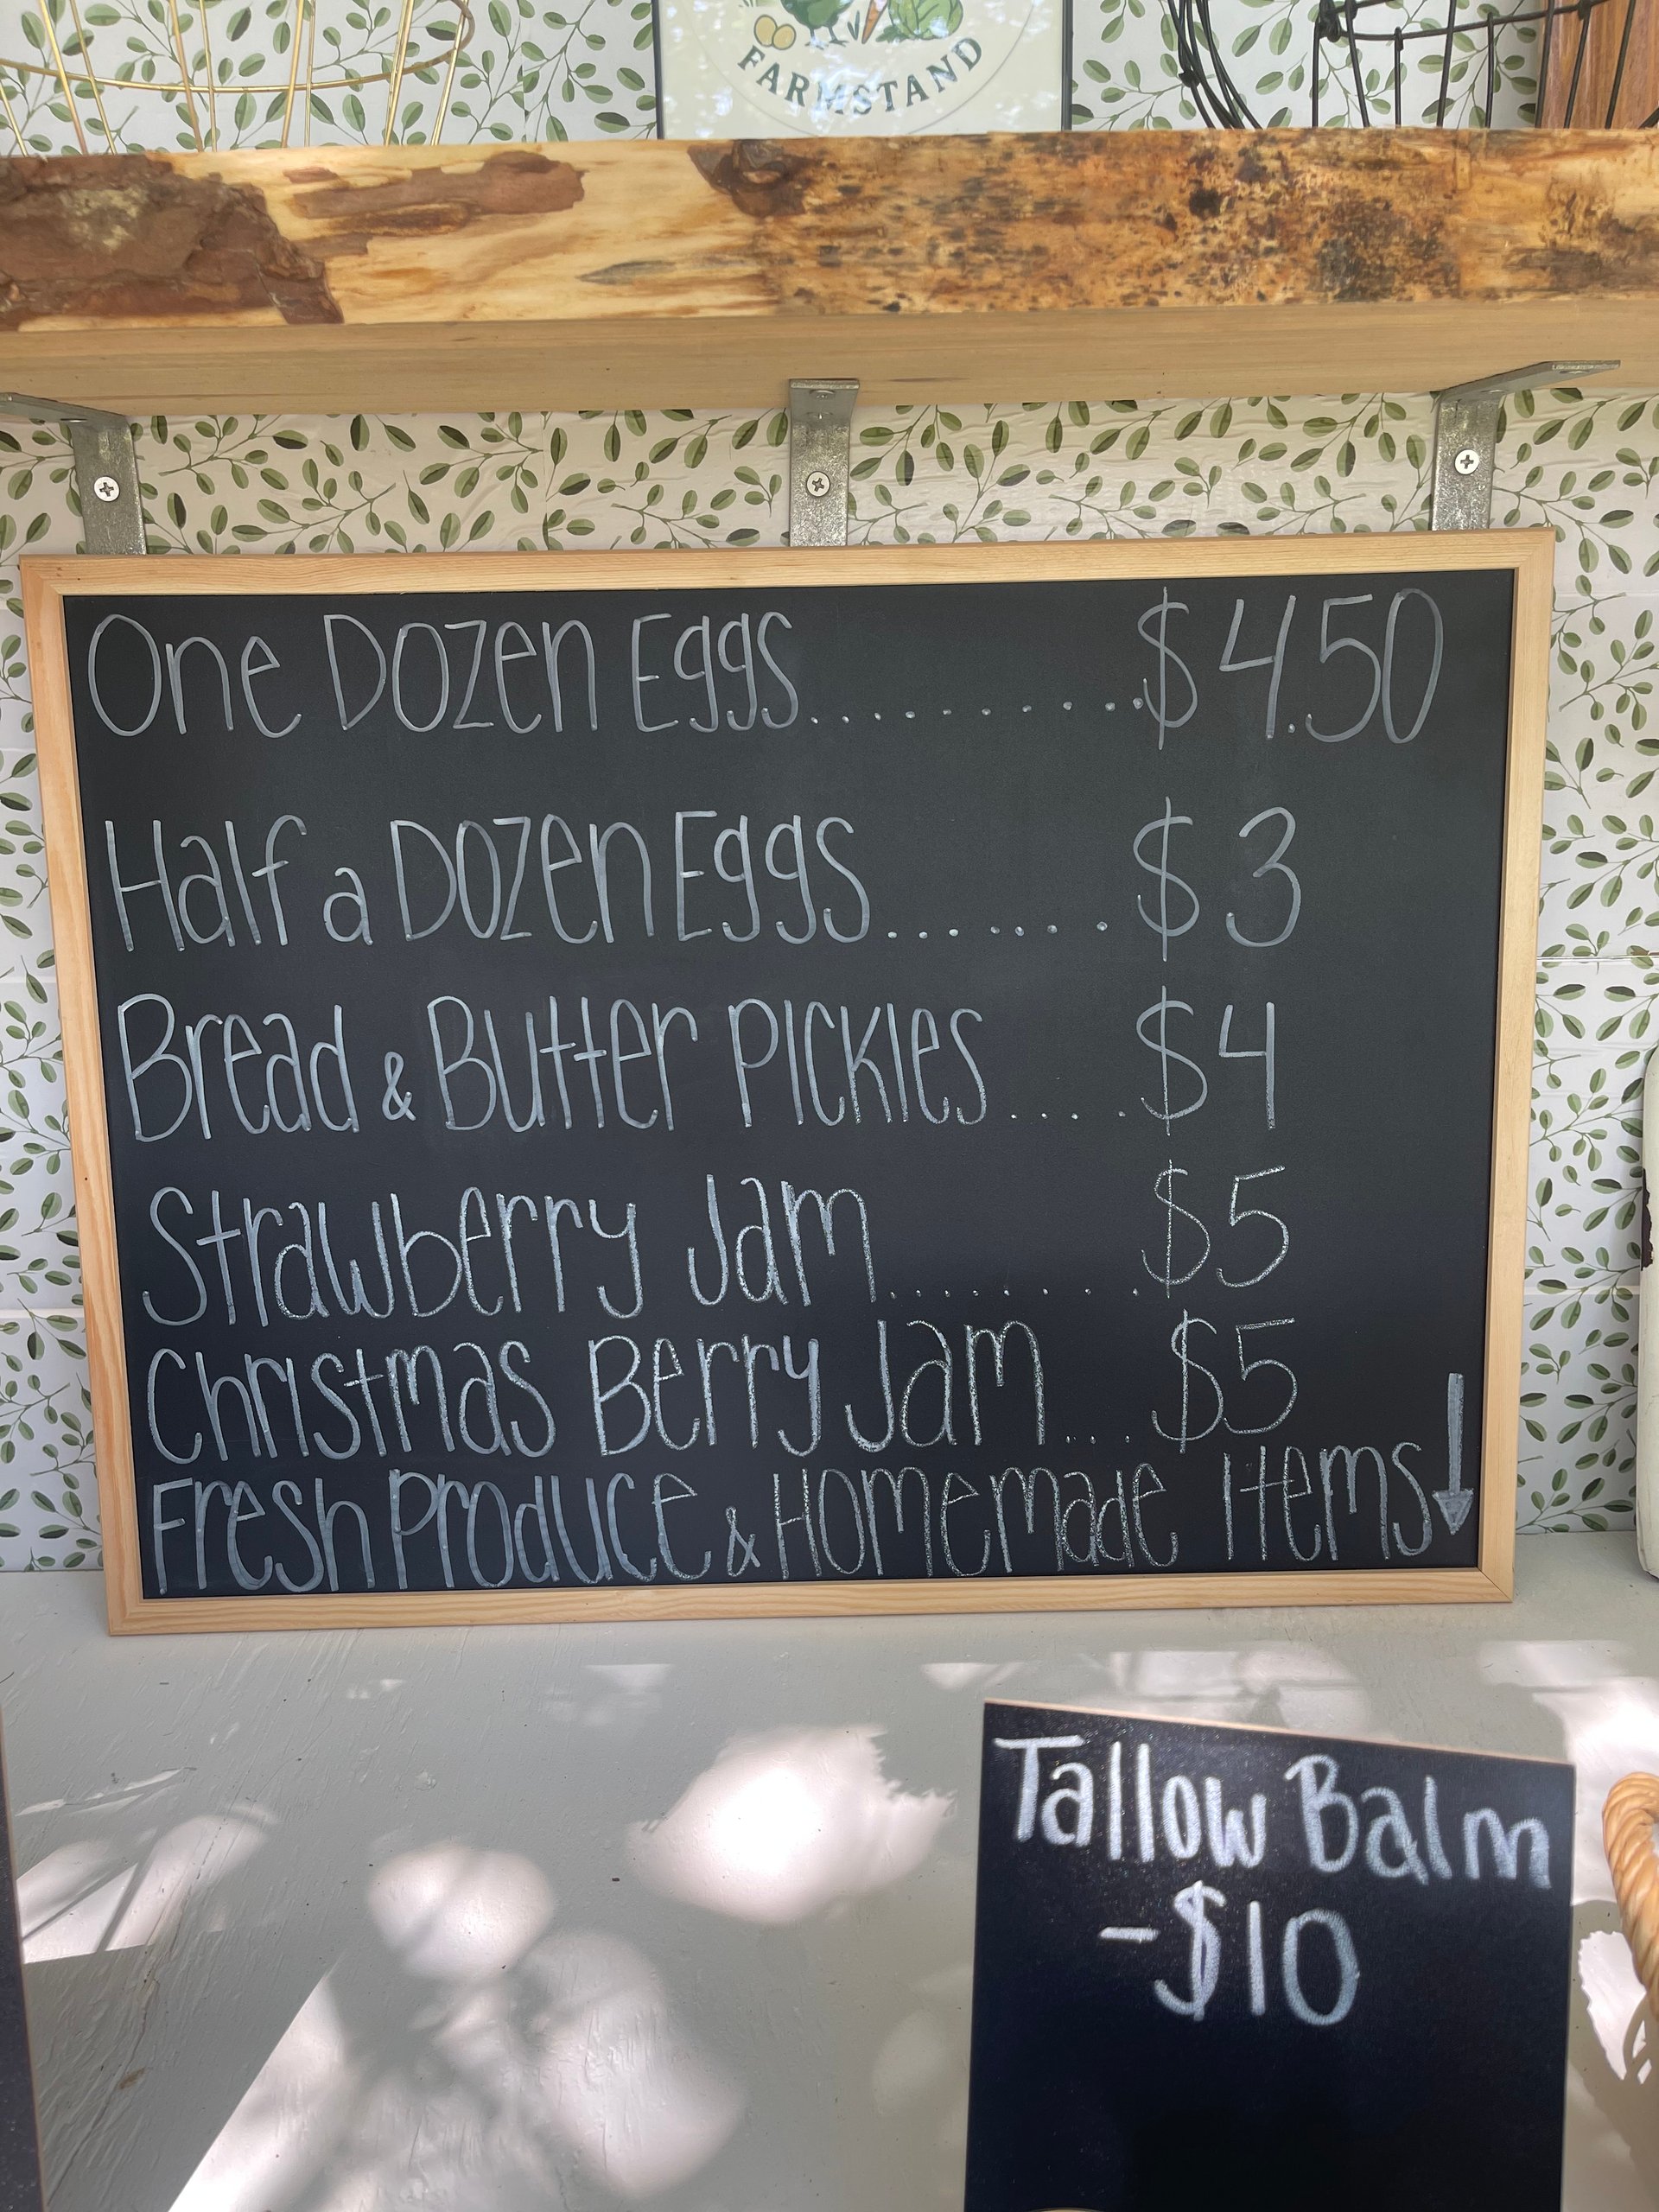 FARMSTAND
One Dozen Eggs...........$4.50
Half a Dozen Eggs.......$3
Bread & Butter Pickles....$4
Strawberry Jam.......$5
Christmas Berry Jam...$5
Fresh Produce & Homemade Items↓
Tallow Balm
-$10